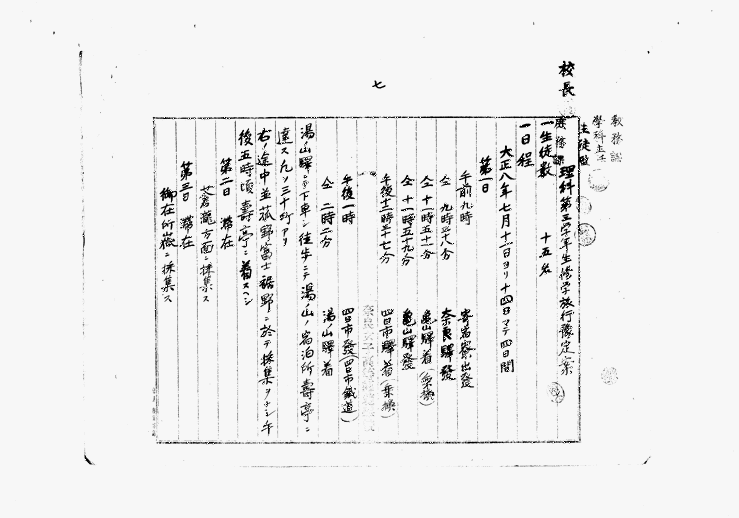 教務課
學科主任
生徒監
庶務課
校長
七
理科第三学年生修学旅行豫定案
一生徒数 十五名
一日程
大正八年七月十一日ヨリ十四日マデ四日間
第一日
午前九時 寄宿寮出發
仝 九時五十八分 奈良驛發
仝 十一時五十一分 亀山驛着(乗換)
仝 十一時五十九分 亀山驛發
午後十二時三十七分 四日市驛着(乗換)
午後一時 四日市發(四日市鐵道)
仝 二時二分 湯ノ山驛着
湯ノ山驛ニテ下車シ徒歩ニテ湯ノ山ノ宿泊所壽亭ニ
達ス凡ソ三十町アリ
右ノ途中並菰野富士裾野ニ於テ採集ヲナシ午
後五時頃壽亭ニ着スヘシ
第二日 滞在
蒼瀧方面ニ採集ス
第三日 滞在
御在所嶽ニ採集ス